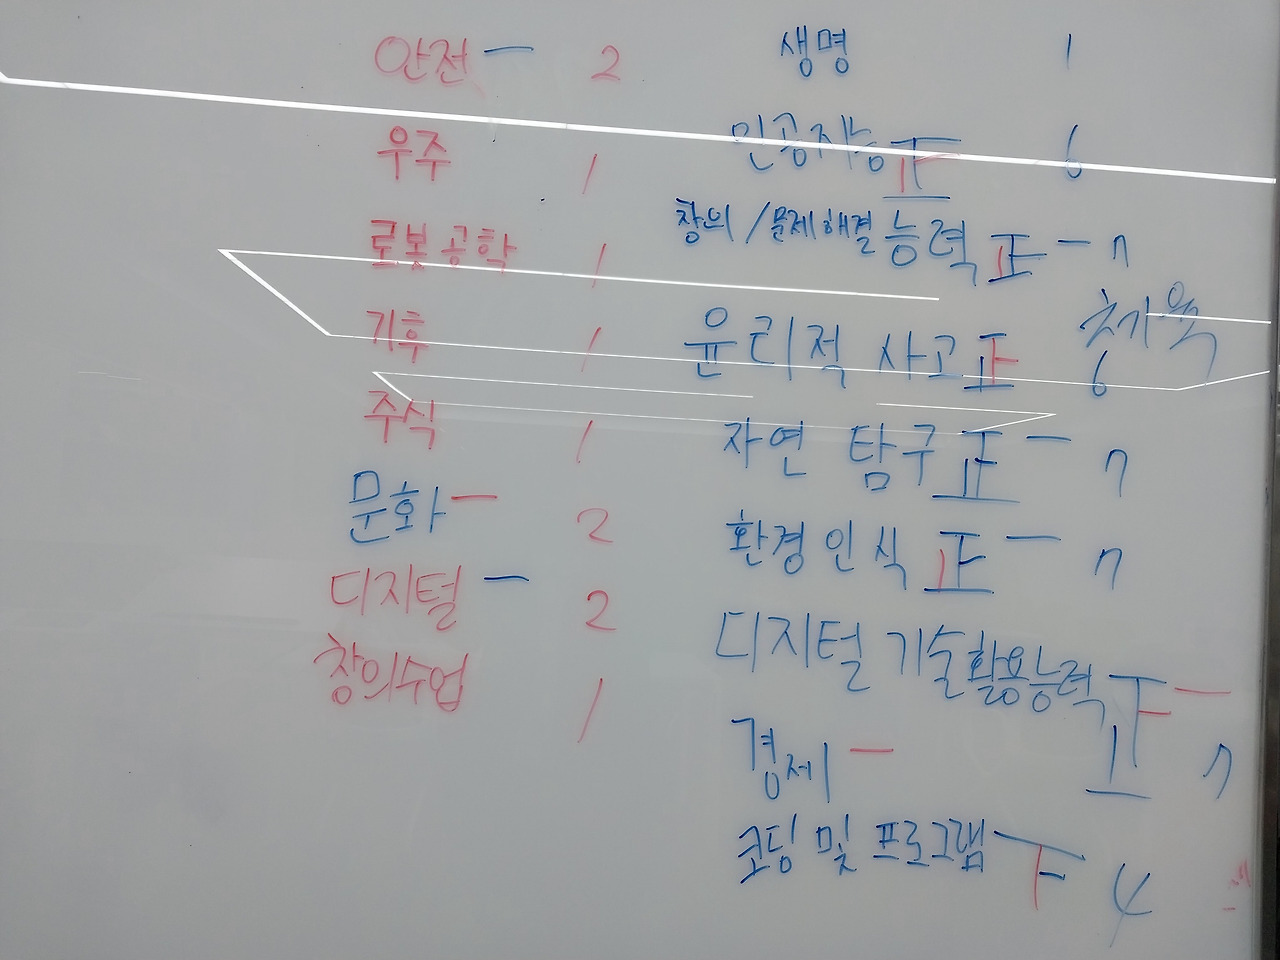 안전 一 2
우주 1
로봇공학 1
기후 1
주식 1
문화 一 2
디지털 一 2
창의수업 1
생명 1
인공지능 正 6
창의/문제해결능력 正 一 7
윤리적 사고 正 6
자연 탐구 正 一 7
환경인식 正 一 7
디지털 기술활용능력 正 一 7
경제 一
코딩 및 프로그램 下 4